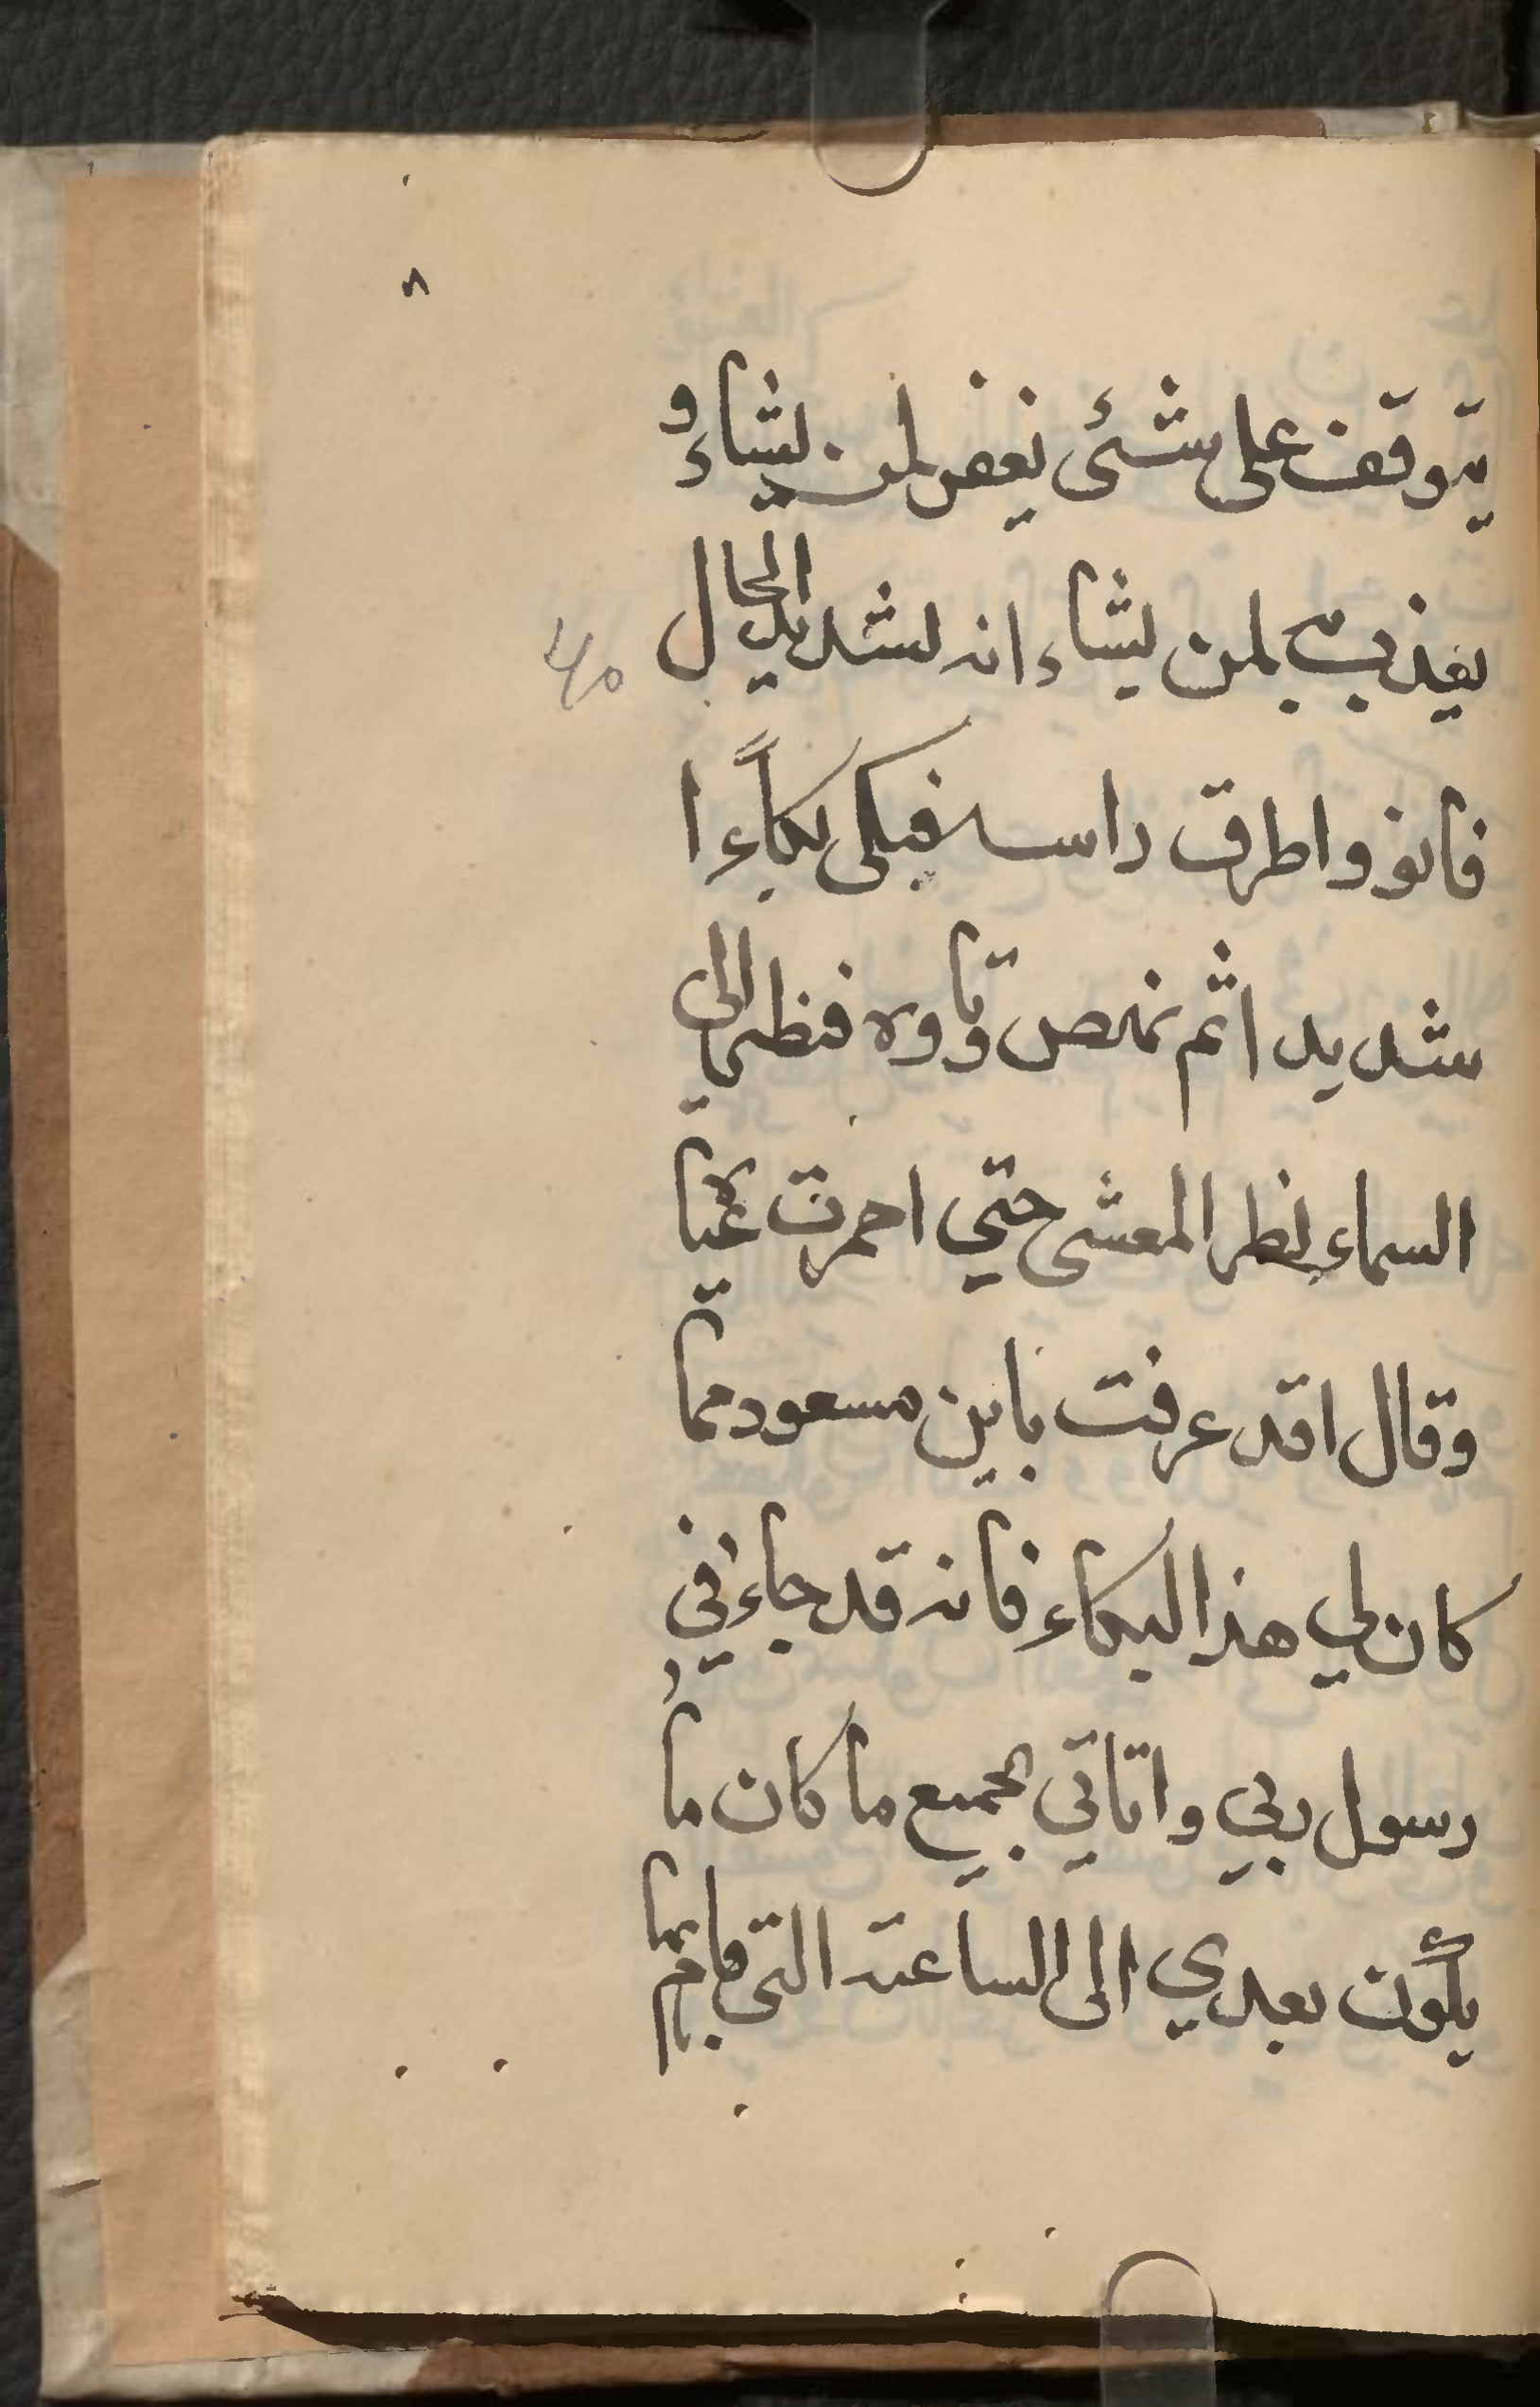 ٨
يتوقف على شئ يغفر لمن يشاء و
يعذب لمن يشاء انه لشديد المحال
فانفر واطرق راسه فبكى بكاءً ا
شديد اثم نهص وتاوه فنظر الى
السماء نظر المغشى حتي احمرت عيناه
وقال اقد عرفت يابن مسعود مما
كان لي هذا البكاء فانه قد جاءني
رسول ربي واتاني بجميع ما كان وما
يكون بعدي الى الساعة التي